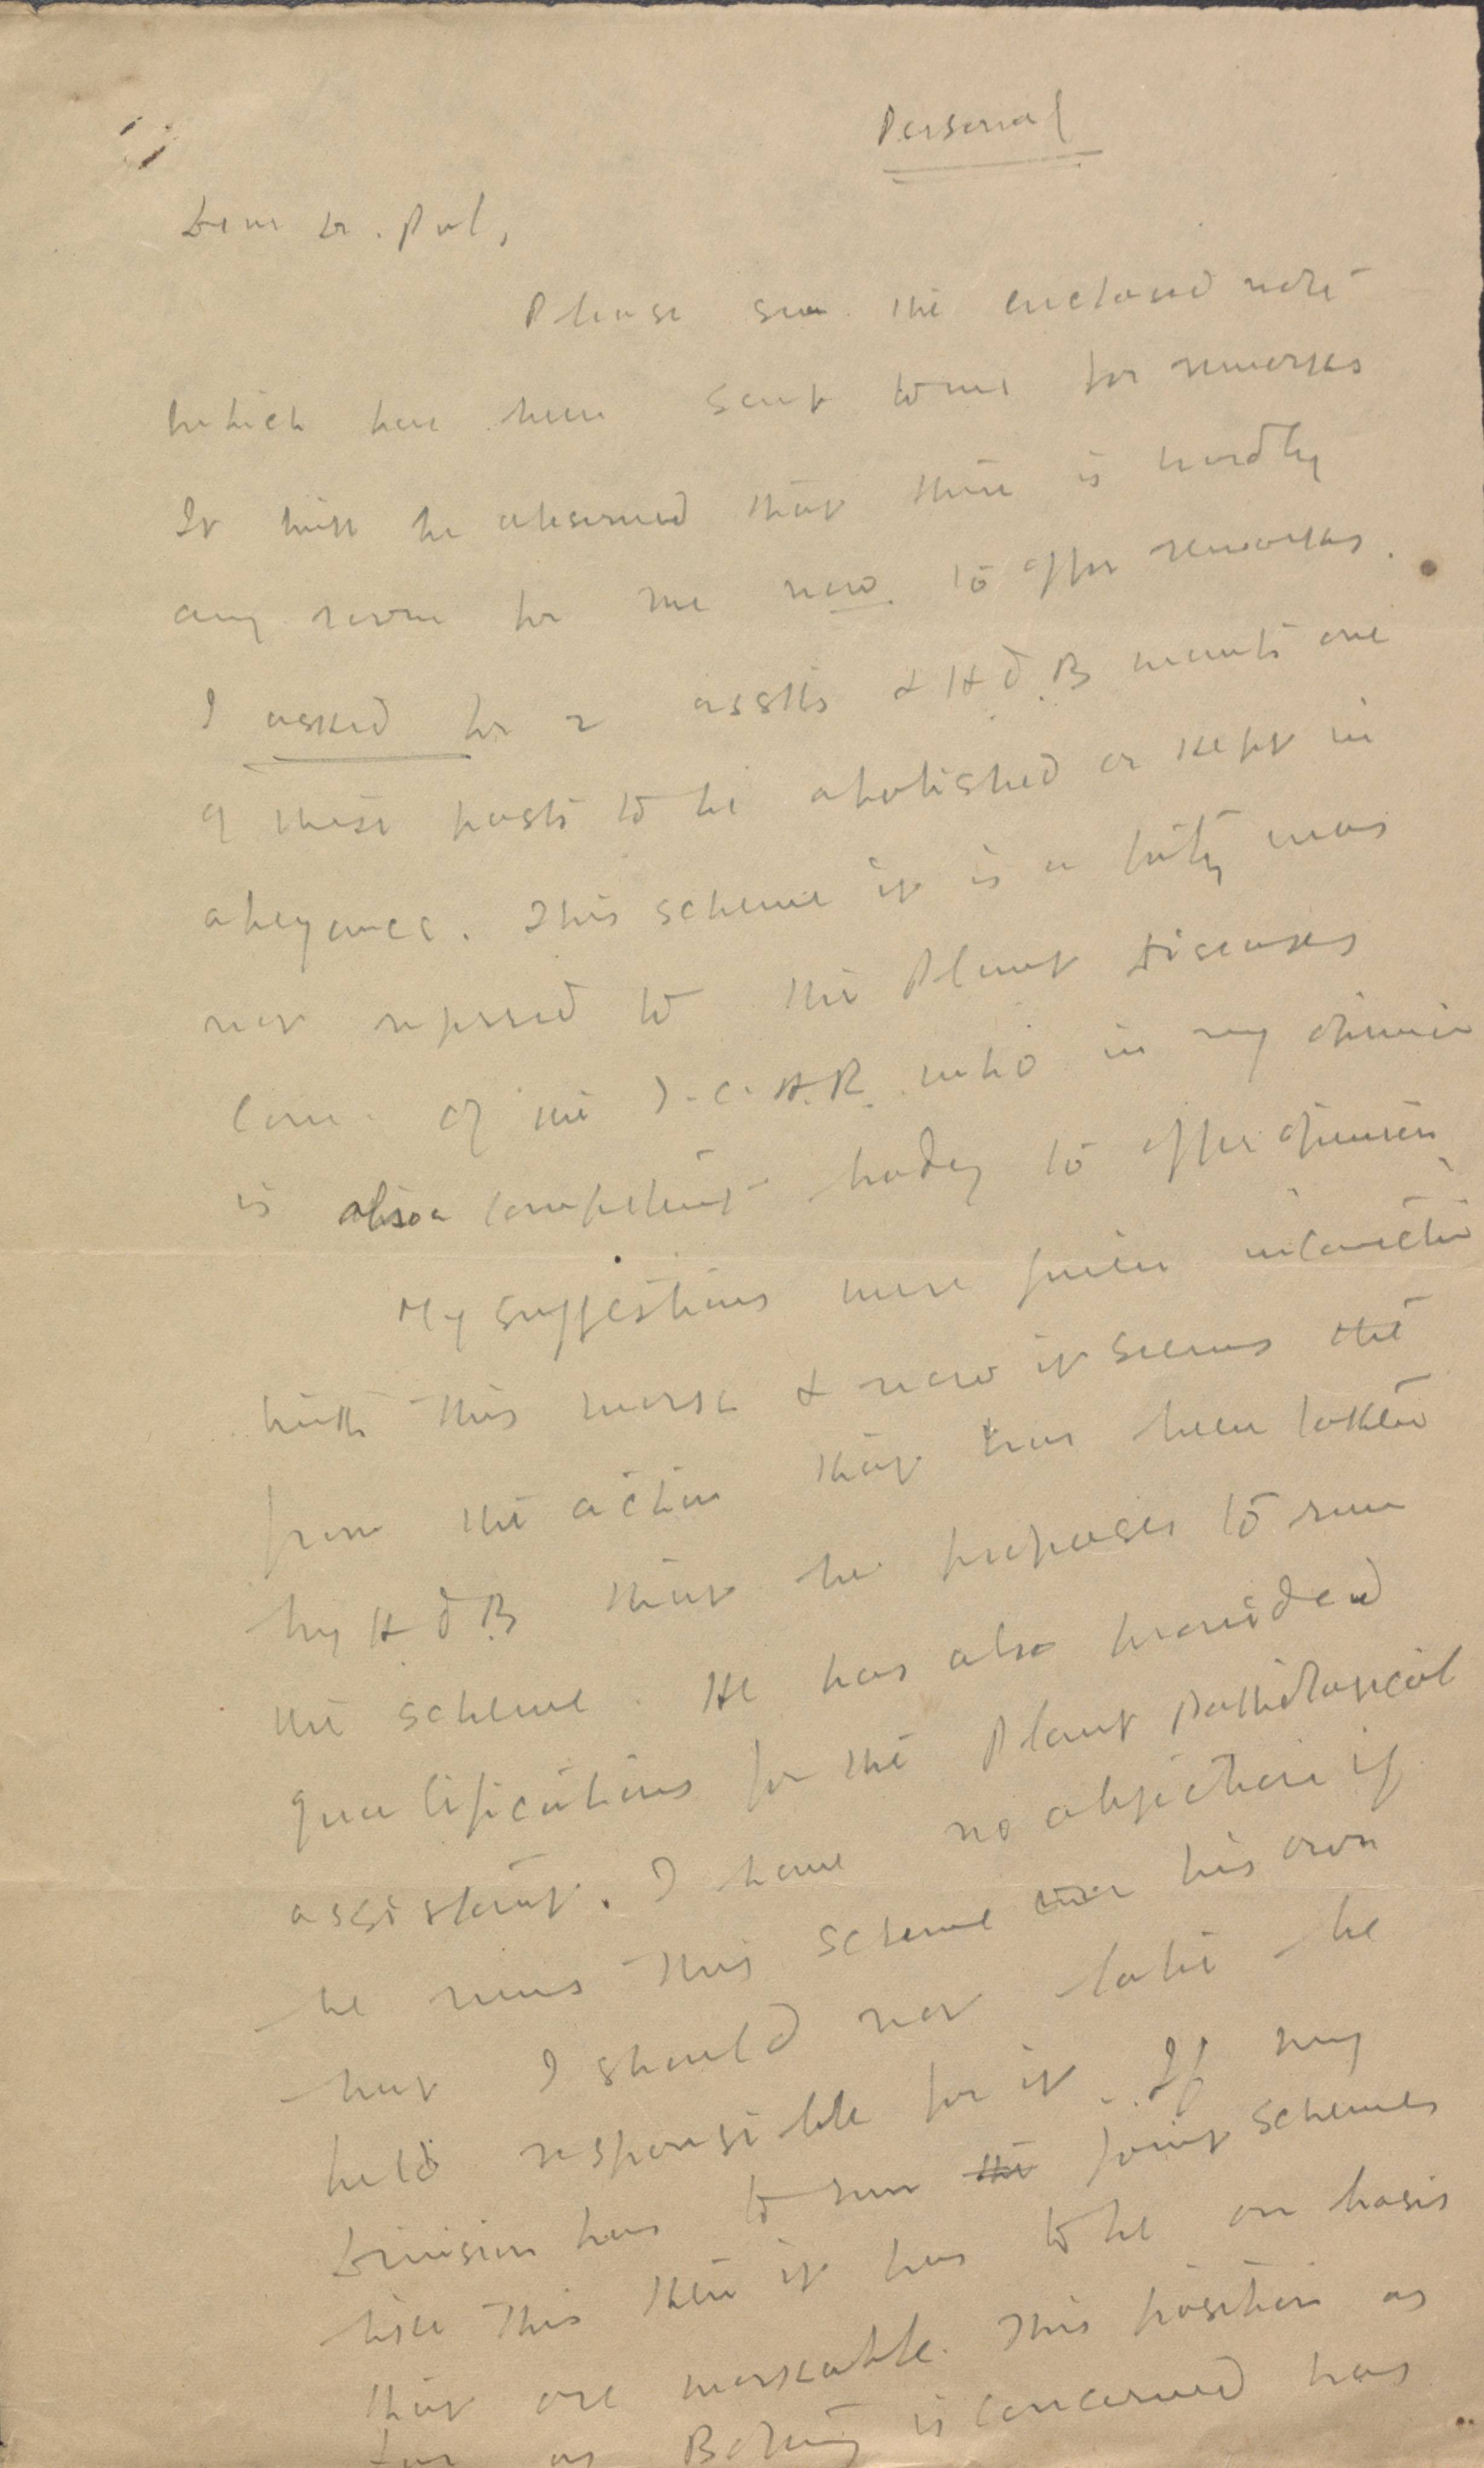 Personal
Dear Dr. Pal,
Please see the enclosed note
which has been sent to me for remarks
It will be observed that there is hardly
any room for me now to offer remarks.
I asked for 2 assts & H.O.B. wants one
of these posts to be abolished or kept in
abeyance. This scheme it is a pity was
not referred to the Plant Diseases
Com. of the I.C.A.R. who in my opinion
is also a competent body to offer opinion.
My suggestions were given in connection
with this work & now it seems that
from the action that has been taken
by H.O.B. that he proposes to run
the scheme. He has also provided
qualifications for the Plant Pathological
assistant. I have no objection if
he runs this scheme on his own
but I should not later be
held responsible for it. If my
Division has to run the joint schemes
like this then it has to be on basis
that are workable. This position as
far as Botany is concerned has